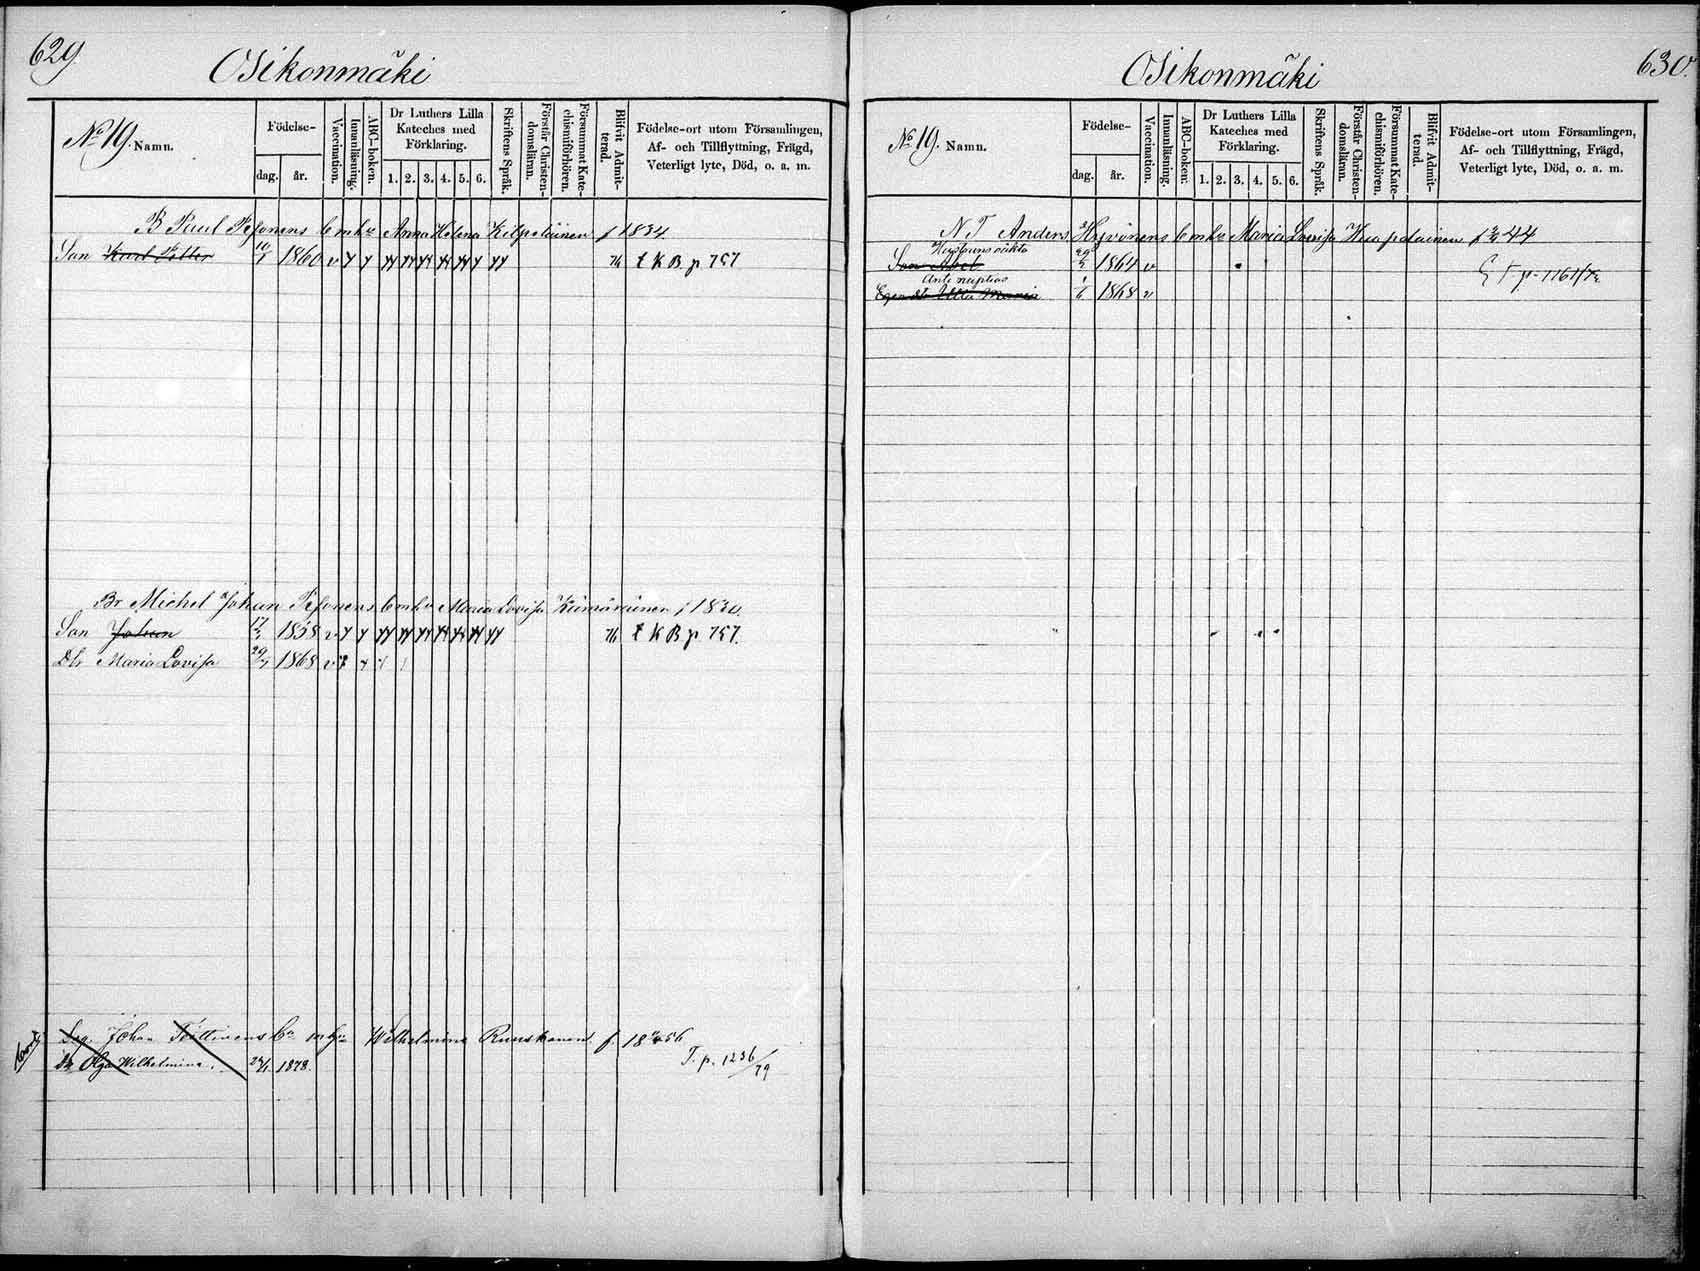 629.
Osikonmäki
No 19. Namn.
Födelse-
dag.
år.
Vaccination.
Innanläsning.
ABC-boken.
Dr Luthers Lilla
Kateches med
Förklaring.
1. 2. 3. 4. 5. 6.
Skriftens Språk.
Förstår Christen-
domslärann.
Försummat Kate-
chismiförhören.
Blifvit Admit-
terad.
Födelse-ort utom Församlingen,
Af- och Tillflyttning, Frägd,
Veterligt lyte, Död, o. a. m.
B Paul Pesonens Enka Anna Helena f 1834
Son Karl Petter 10/1 1860 v 76 t K B p 757
Br Michel Johan Pesonens Maria Lovisa f 1830.
Son Johan 17/2 1858 v 76 t K B p 757.
Dtr Maria Lovisa 29/7 1868 v
Johan Wilhelmina Ruuskanen f. 18 56
Dtr Olga Wilhelmina. 27/1 1878. T. p. 1236/79
630.
Osikonmäki
No 19. Namn.
Födelse-
dag.
år.
Vaccination.
Innanläsning.
ABC-boken.
Dr Luthers Lilla
Kateches med
Förklaring.
1. 2. 3. 4. 5. 6.
Skriftens Språk.
Förstår Christen-
domslärann.
Försummat Kate-
chismiförhören.
Blifvit Admit-
terad.
Födelse-ort utom Församlingen,
Af- och Tillflyttning, Frägd,
Veterligt lyte, Död, o. a. m.
N T Anders Hyvönens Maria Lovisa 44
Hustruns oäkta
Son Abel 1864 v
Ante nuptias
Ulla Maria 1/6 1868 v